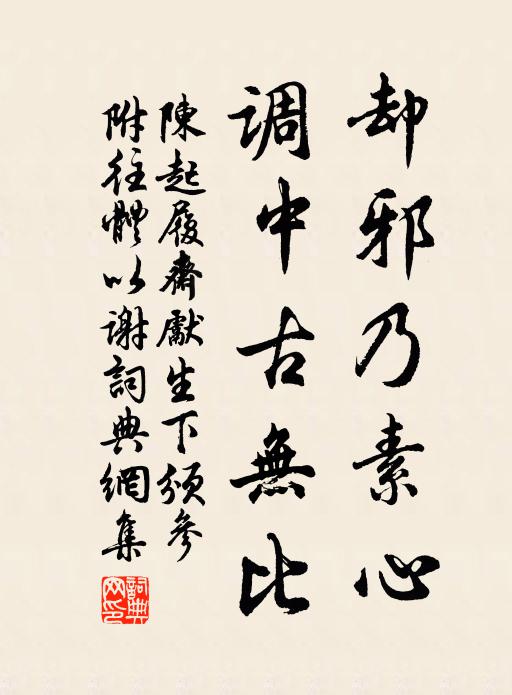 却邪乃素心
調中古無比
陳起履齋獻生下頒參
附往體以謝詞典網集
詞典網印